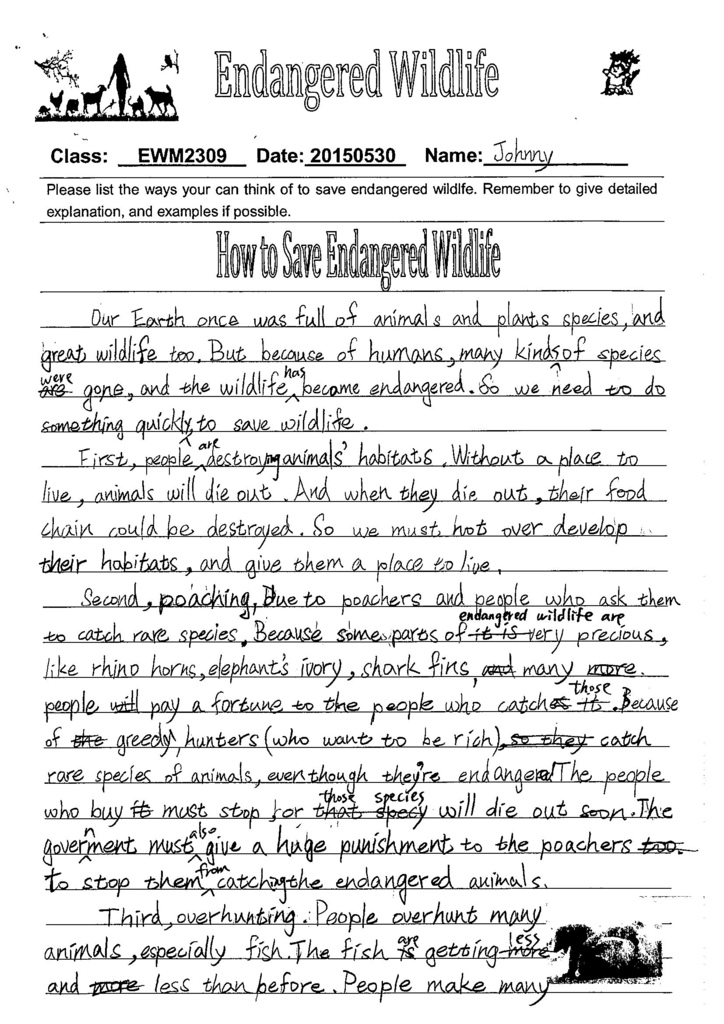 Endangered Wildlife
Class: EWM2309 Date: 20150530 Name: Johnny
Please list the ways your can think of to save endangered wildlfe. Remember to give detailed
explanation, and examples if possible.
How to Save Endangered Wildlife
Our Earth once was full of animals and plants species, and
great wildlife too. But because of humans, many kinds of species
were
are gone, and the wildlife has become endangered. So we need to do
something quickly, to save wildlife.
First, people are destroying animals' habitats. Without a place to
live, animals will die out. And when they die out, their food
chain could be destroyed. So we must not over develop
their habitats, and give them a place to live.
Second, poaching, Due to poachers and people who ask them
endangered wildlife are
to catch rare species. Because some parts of it is very precious,
like rhino horns, elephant's ivory, shark fins, and many more.
people will pay a fortune to the people who catches it those. Because
of the greedy hunters (who want to be rich), so they catch
rare species of animals, even though they're endangered. The people
those species
who buy it must stop for that specy will die out soon. The
government must also give a huge punishment to the poachers too.
to stop them from catching the endangered animals.
Third, overhunting. People overhunt many
animals, especially fish. The fish is are getting more less
and more less than before. People make many